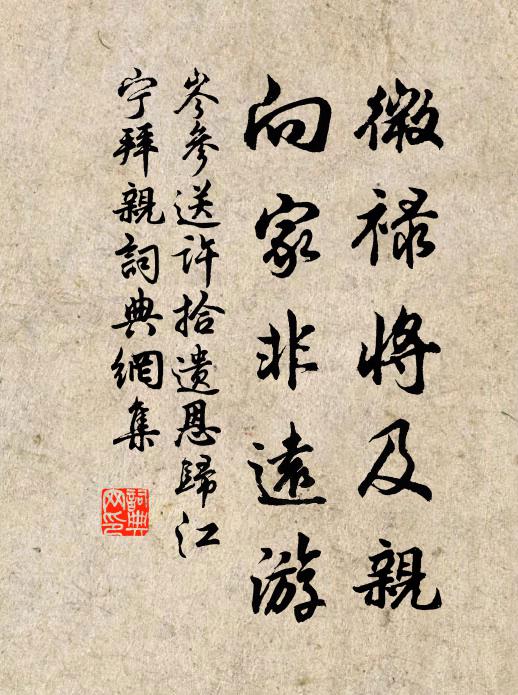 微禄将及親
向家非遠游
岑參送许拾遺恩歸江
宁拜親詞典網集
詞典
网印